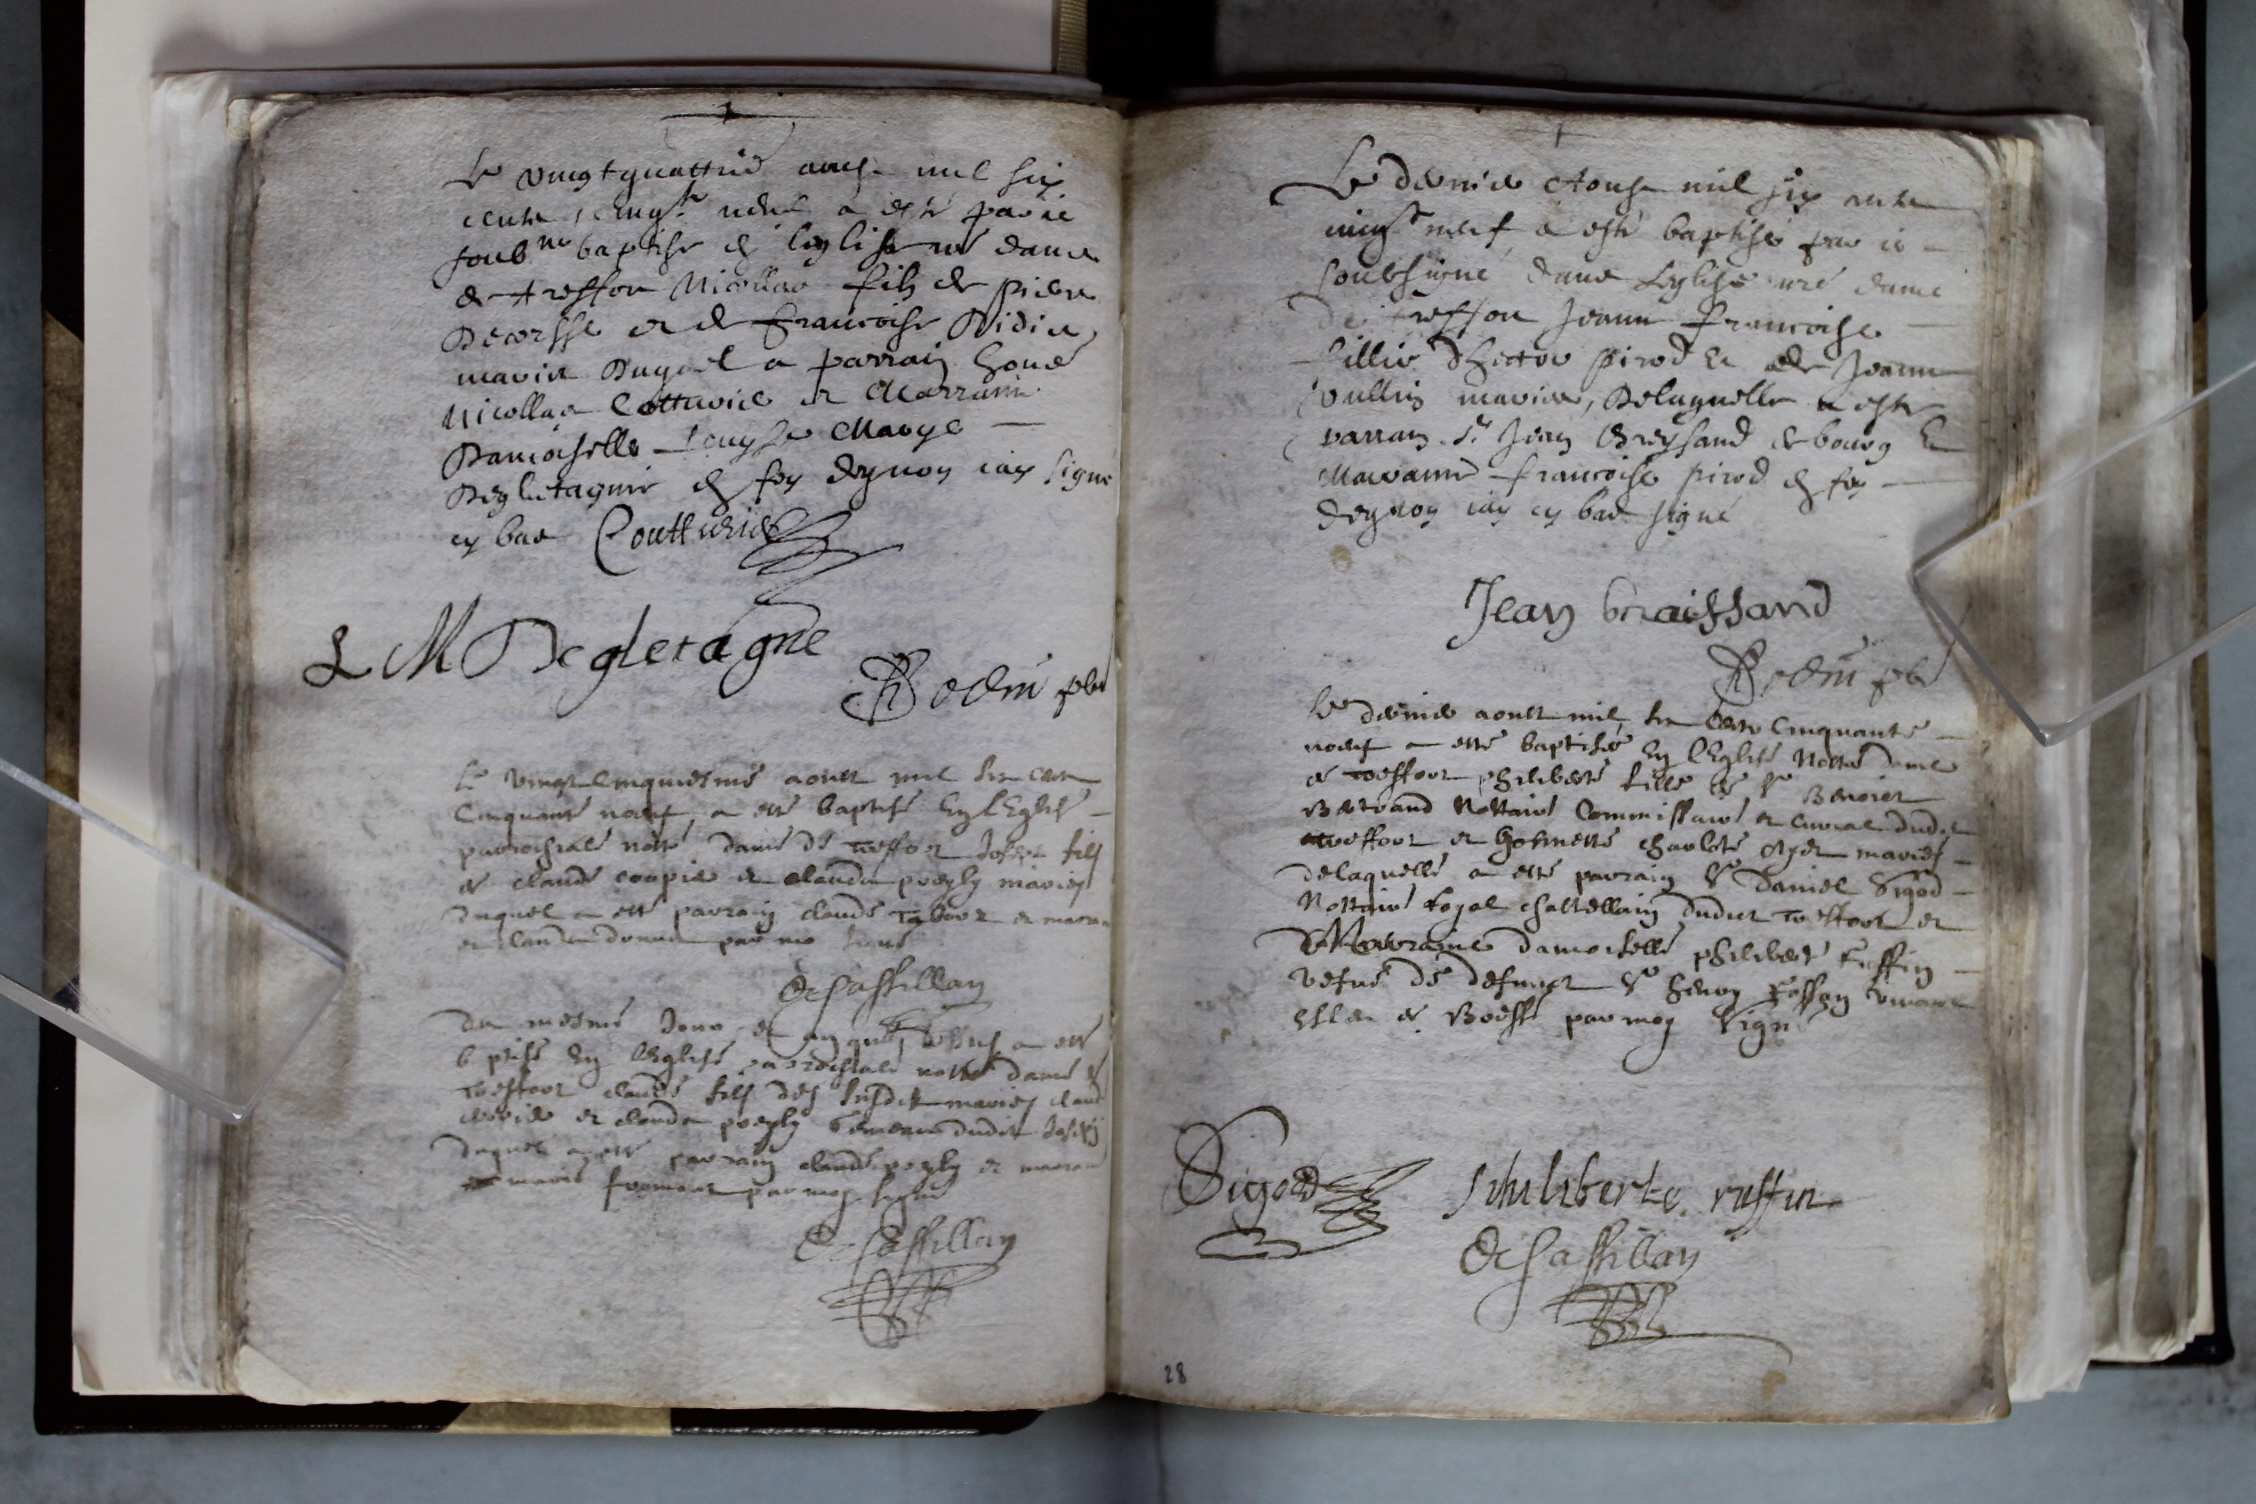 Le vingt quattrie aoust mil six
cents, cinqte neuf a esté par ie
soubne baptise en leglise nre dame
de treffor Nicollas filz de Pierre
et de francoise Didier
maries Duquel a parrain hone
Nicollas Cotturier et Marraine
Damoiselle Louyse Marye
Degletagnie en foy dequoy iay signe
cy bas Coutturier
L M Degletagne
Bodin pbr
Le vingt cinquiesme aoust mil six cens
Cinquante noeuf, a este baptisé En l'Eglise
parrochiale notre dame de treffort Joseph fils
de claude et claudine poegly maries
Duquel a esté parrain claude et marraine
claudine par moy signé
De Sassillan
du mesme Jour et an que dessus a esté
baptisé En l'Eglise parrochiale notre dame de
treffort claude fils des susdits maries claude
et claudine poegly dudit Joseph
Duquel a esté parrain claude poegly et marraine
marie froment par moy signé
De Sassillan
Le dernier Aoust mil six cents
cinqte neuf a esté baptisé par ie
soubsigné dans Leglise nre dame
De treffort Jeanne francoise
fillie d'hector pirod et de Jeanne
Vullin maries, Delaquelle a este
parrain Sr Jean Breysand de bourg et
Marrainne francoise pirod en foy
dequoy iay cy bas signé
Jean braissand
Bodin pbr
Le dernier aoust mil six cents cinquante
noeuf a esté baptisée En l'Eglise Notre dame
de treffort philiberte fille de Sr Benoist
Bertrand Nottaire Commissaire et curial dudit
treffort et charlote maries
delaquelle a esté parrain Sr Daniel Sigod
Nottaire Royal chastellain dudit treffort et
Marraine damoiselle philiberte Ruffin
vefue de defunct Sr henry
par moy signé
Sigod
philiberte ruffin
De Sassillan
28